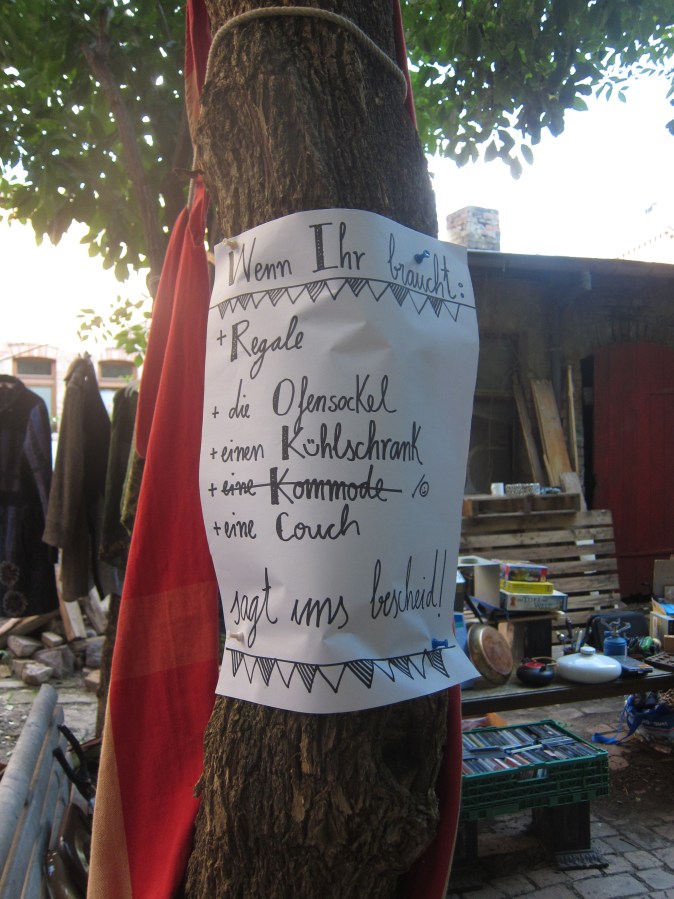 Wenn Ihr braucht:
+ Regale
+ die Ofensockel
+ einen Kühlschrank
+ eine Kommode
+ eine Couch
sagt uns bescheid!